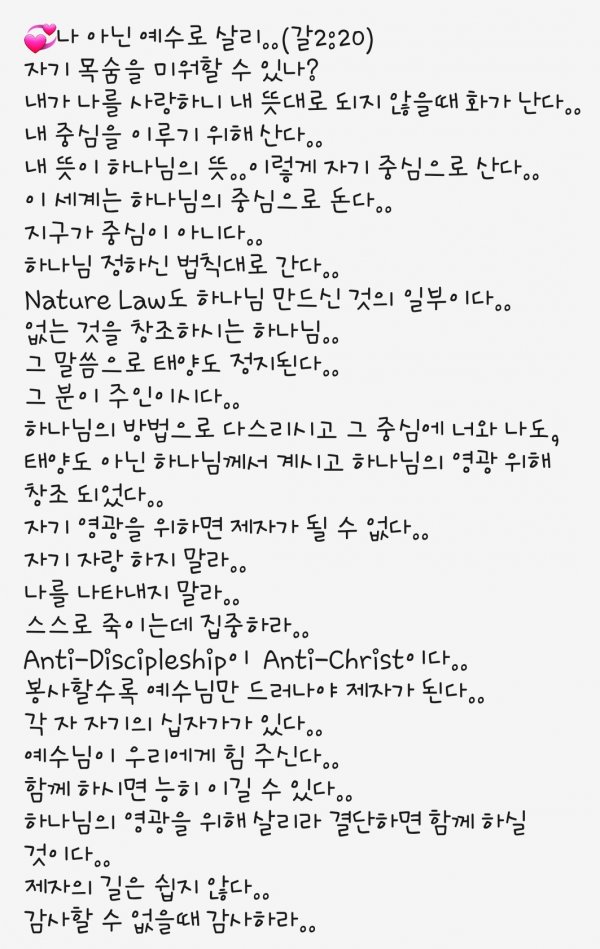 💞나 아닌 예수로 살리..(갈2:20)
자기 목숨을 미워할 수 있나?
내가 나를 사랑하니 내 뜻대로 되지 않을때 화가 난다..
내 중심을 이루기 위해 산다..
내 뜻이 하나님의 뜻..이렇게 자기 중심으로 산다..
이 세계는 하나님의 중심으로 돈다..
지구가 중심이 아니다..
하나님 정하신 법칙대로 간다..
Nature Law도 하나님 만드신 것의 일부이다..
없는 것을 창조하시는 하나님..
그 말씀으로 태양도 정지된다..
그 분이 주인이시다..
하나님의 방법으로 다스리시고 그 중심에 너와 나도,
태양도 아닌 하나님께서 계시고 하나님의 영광 위해
창조 되었다..
자기 영광을 위하면 제자가 될 수 없다..
자기 자랑 하지 말라..
나를 나타내지 말라..
스스로 죽이는데 집중하라..
Anti-Discipleship이 Anti-Christ이다..
봉사할수록 예수님만 드러나야 제자가 된다..
각 자 자기의 십자가가 있다..
예수님이 우리에게 힘 주신다..
함께 하시면 능히 이길 수 있다..
하나님의 영광을 위해 살리라 결단하면 함께 하실
것이다..
제자의 길은 쉽지 않다..
감사할 수 없을때 감사하라..